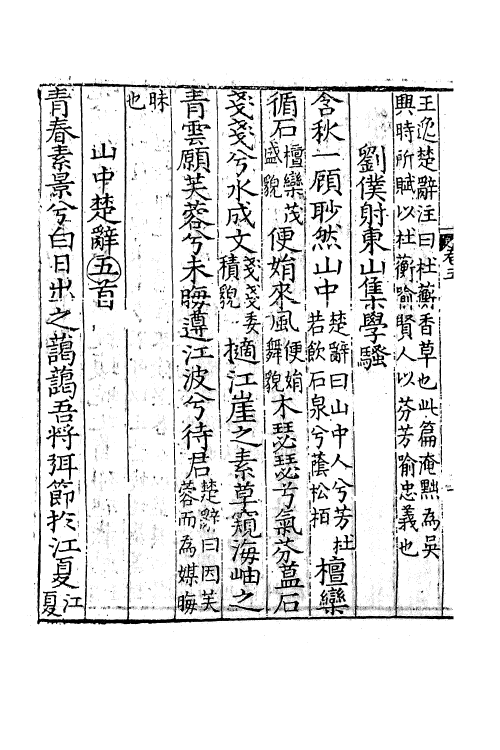 王逸楚辭注曰杜蘅香草也此篇淹黜為吳
興時所賦以杜蘅喻賢人以芬芳喻忠義也
劉僕射東山集學騷
含秋一顧眇然山中楚辭曰山中人兮芳杜若飲石泉兮蔭松栢檀欒
循石檀欒茂盛貌便娟來風便娟舞貌木瑟瑟兮氣芬蒀石
戔戔兮水成文戔戔委積貌擿江崖之素草窺海岫之
青雲願芙蓉兮未晦遵江波兮待君楚辭曰因芙蓉而為媒晦
昧也
山中楚辭五首
青春素景兮白日出之藹藹吾將弭節扵江夏江夏
卷五